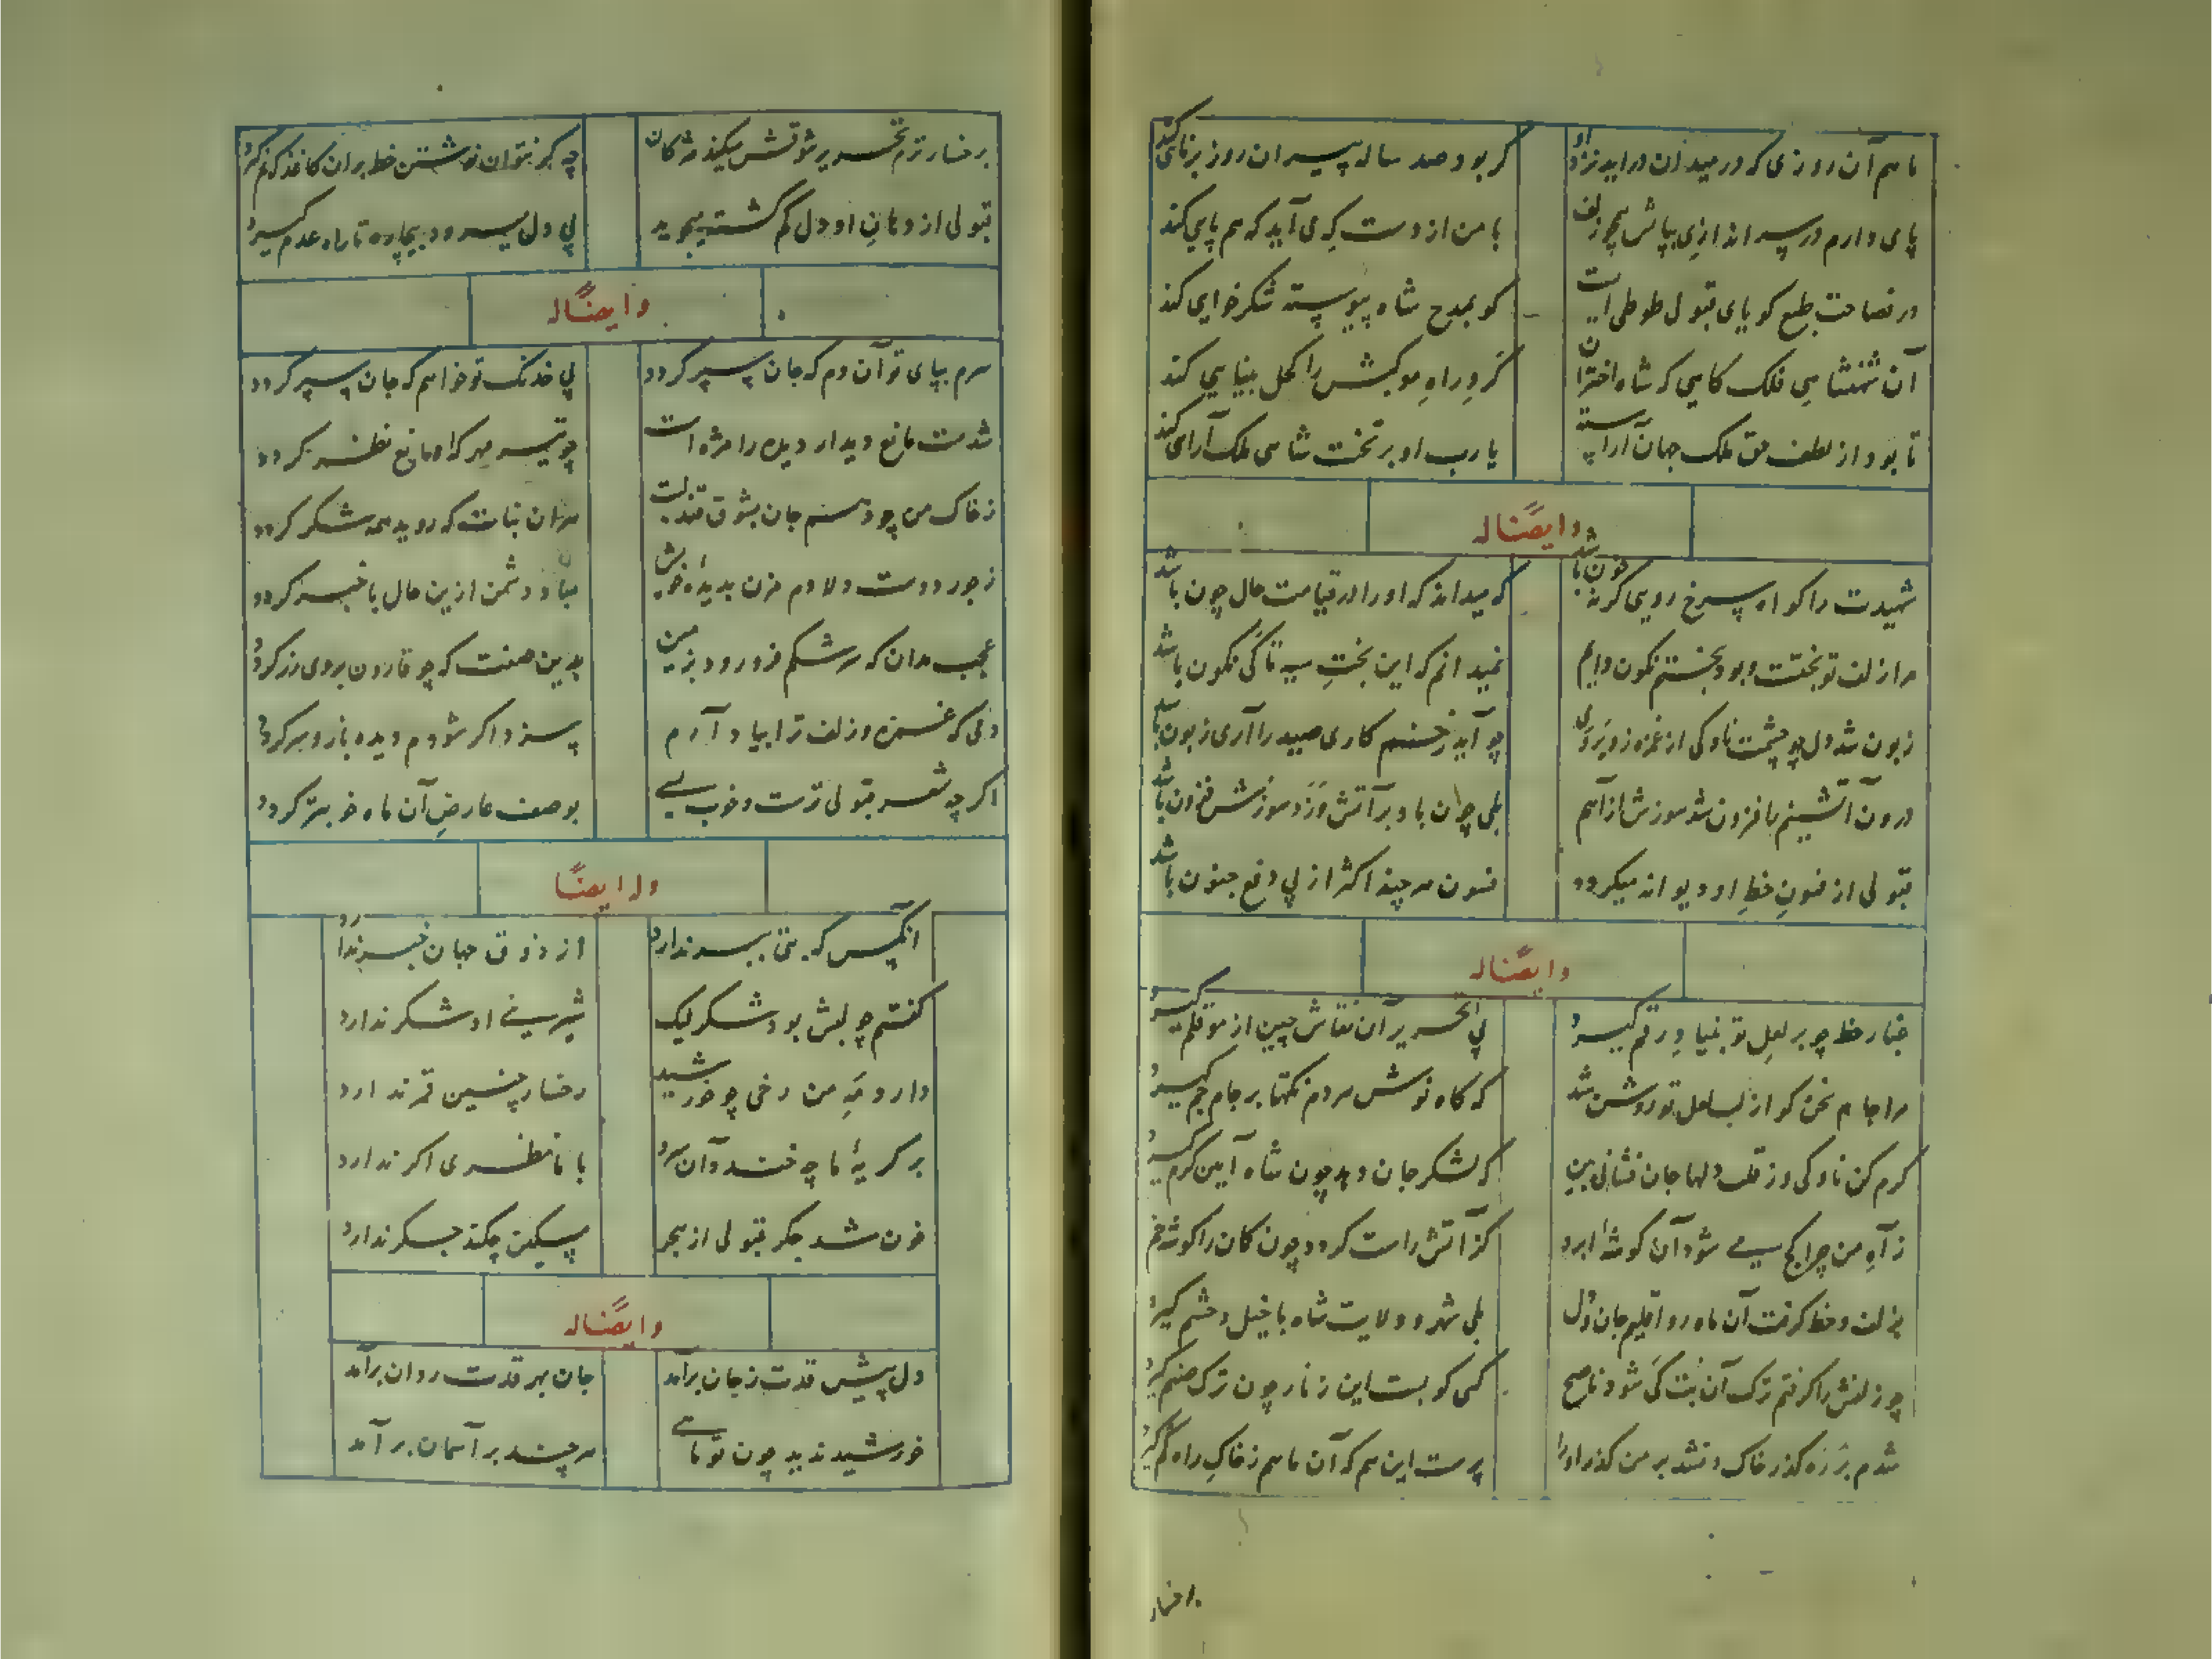 ماهم آن روزی که در میدان در اید نزد او
کر بود صد ساله پیر ان روز برنایی کند
پای دارم در سر اندازی بپاش همچو زلف
با من از دست که می آید که هم پایی کند
در فصاحت طبع کویای قبولی طوطی است
کو بمدح شاه پیوسته شکرخایی کند
آن شهنشاهی فلک کاهی که شاه اختران
کرد راه موکبش را کحل بینایی کند
تا بود از لطف حق ملک جهان آراسته
یا رب او بر تخت شاهی ملک آرای کند
وایضًا له
شهیدت را کواه سرخ رویی کر نه خون باشد
که میداند که او را در قیامت حال چون باشد
مرا زلف تو بختست و بود بختم نکون دایم
نمیدانم که این بخت سیه تا کی نکون باشد
زبون شد دل چو چشمت ناوکی از غمزه زد بر وی
چو آید زخم کاری صید را آری زبون باشد
درون آتشینم را فزون شد سوزش از آهم
بلی چون باد بر آتش وزد سوزش فزون باشد
قبولی از فسون خط او دیوانه میکردد
فسون هر چند اکثر از پی دفع جنون باشد
وایضًا له
غبار خط چو بر لعل تو بنیاد رقم کیرد
پی تحریر آن نقاش چین از مو قلم کیرد
مرا جام سخن کو از لب لعل تو روشن شد
که کاه نوش مردم نکتها بر جام جم کیرد
کرم کن ناوکی وز قلب دلها جان فشانی بین
که لشکر جان دهد چون شاه آیین کرم کیرد
ز آه من چرا کج سے شود آن کوشهٔ ابرو
کز آتش راست کردد چون کمان را کوشه خم
بزلف و خط کرفت آن ماه رو اقلیم جان و دل
بلی شهر و ولایت شاه با خیل و حشم کیرد
چو زلفش را کرفتم ترک آن بت کی شود ناصح
کسی کو بست این زنار چون ترک صنم کیرد
شدم بر ره کذر خاک و نشد بر من کذر او را
پرست این هم که آن ماهم ز خاک راه کم کیرد
برخسار
برخسار تو تحریر شوقش میکند مژکان
چه کر نتوان نوشتن خط بران کاغذ که نم کیرد
قبولی از دهان او دل کم کشته میجوید
پی دل میرود بیچاره تا راه عدم کیرد
وایضًا له
سرم بپای تو آن دم که جان سپر کردد
پی خدنک تو خواهم که جان سپر کردد
شدست مانع دیدار دیده را مژه است
چو تیر هر که او مانع نظر کردد
ز خاک من چو دهم جان بشوق قند لبت
هر ان نبات که روید همه شکر کردد
ز جور دوست دلا دم مزن بدیدهٔ خویش
مباد دشمن ازین حال با خبر کردد
عجب مدان که سرشکم فرو رود بزمین
بدین صفت که چو قارون بروی زر کردد
دمی که غمزه و زلف ترا بیاد آرم
سزد اکر شودم دیده باز و سر کردد
اکر چه شعر قبولی ترست و خوب بسے
بوصف عارض آن ماه خوبتر کردد
وله ایضًا
آنکس که بتی ببر ندارد
از ذوق جهان خبر ندارد
کفتم چو لبش بود شکر لیک
شیرینے او شکر ندارد
دارد مه من رخی چو خورشید
رخسار چنین قمر ندارد
بر کریهٔ ما چه خندد آن سرو
با ما نظری اکر ندارد
خون شد جکر قبولی از هجر
مسکین چکند جکر ندارد
وایضًا له
دل پیش قدت ز جان برآمد
جان بر قدت روان برآمد
خورشید ندید چون تو ماهے
هر چند بر آسمان بر آمد